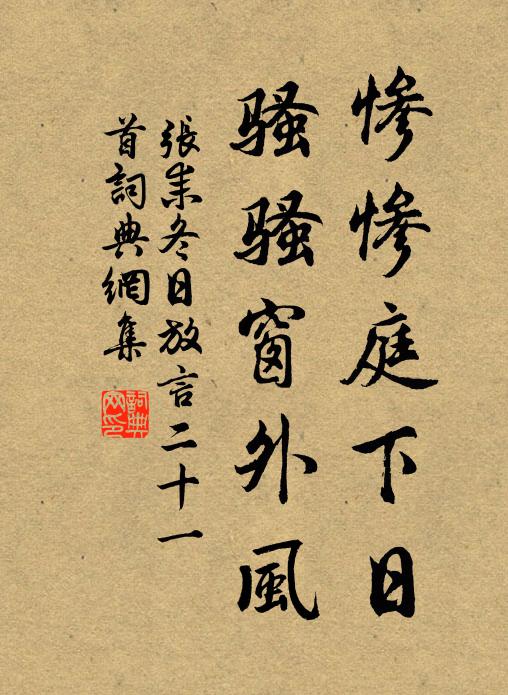 慘慘庭下日
騷騷窗外風
張耒冬日放言二十一
首詞典網集
詞典
网印